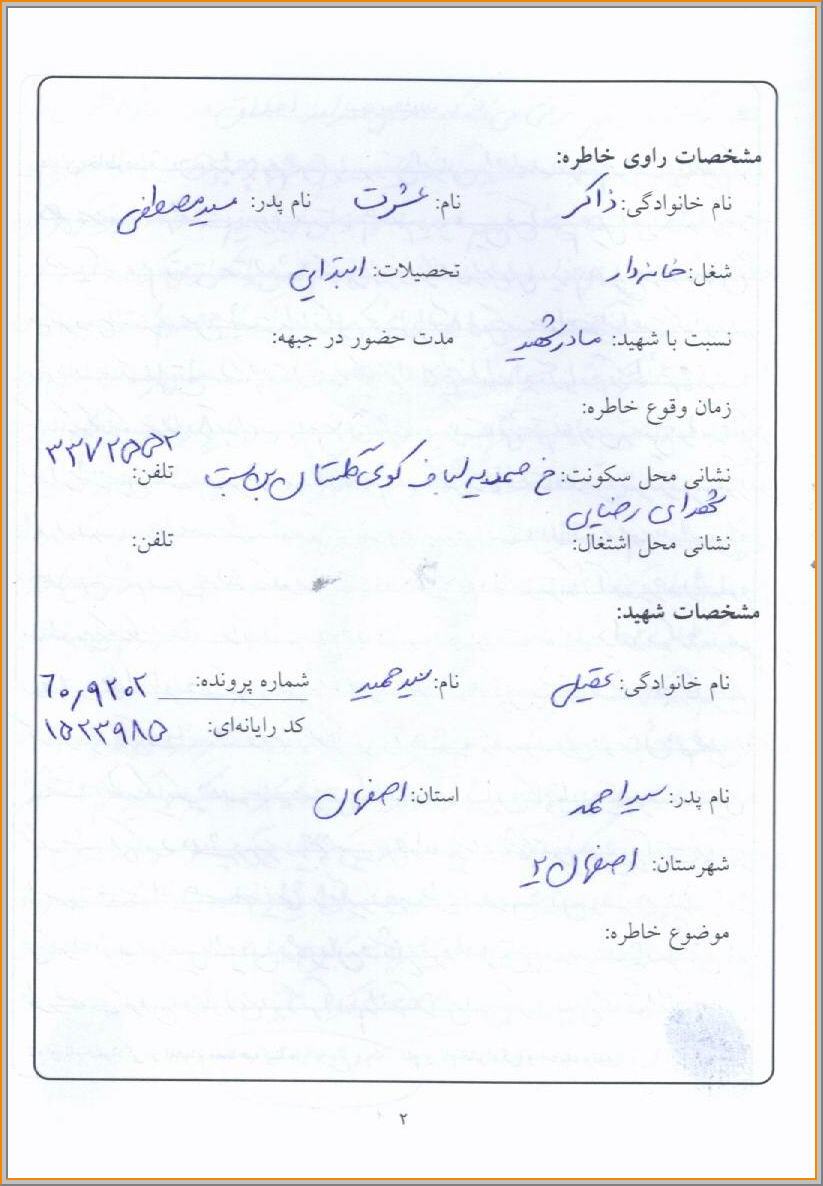 مشخصات راوی خاطره:
نام خانوادگی: ذاکر نام: عشرت نام پدر: سیدمصطفی
شغل: خانه‌دار تحصیلات: ابتدایی
نسبت با شهید: مادر شهید مدت حضور در جبهه:
زمان وقوع خاطره:
نشانی محل سکونت: خ صمدیه لباف کوی گلستان بن بست تلفن: ۳۳۷۲۵۵۳
شهدای رضایی
نشانی محل اشتغال: تلفن:
مشخصات شهید:
نام خانوادگی: عقیلی نام: سید حمید شماره پرونده: ۶۰٫۹۲۰۲
کد رایانه‌ای: ۱۵۲۳۹۸۵
نام پدر: سید احمد استان: اصفهان
شهرستان: اصفهان ۲
موضوع خاطره:
۲